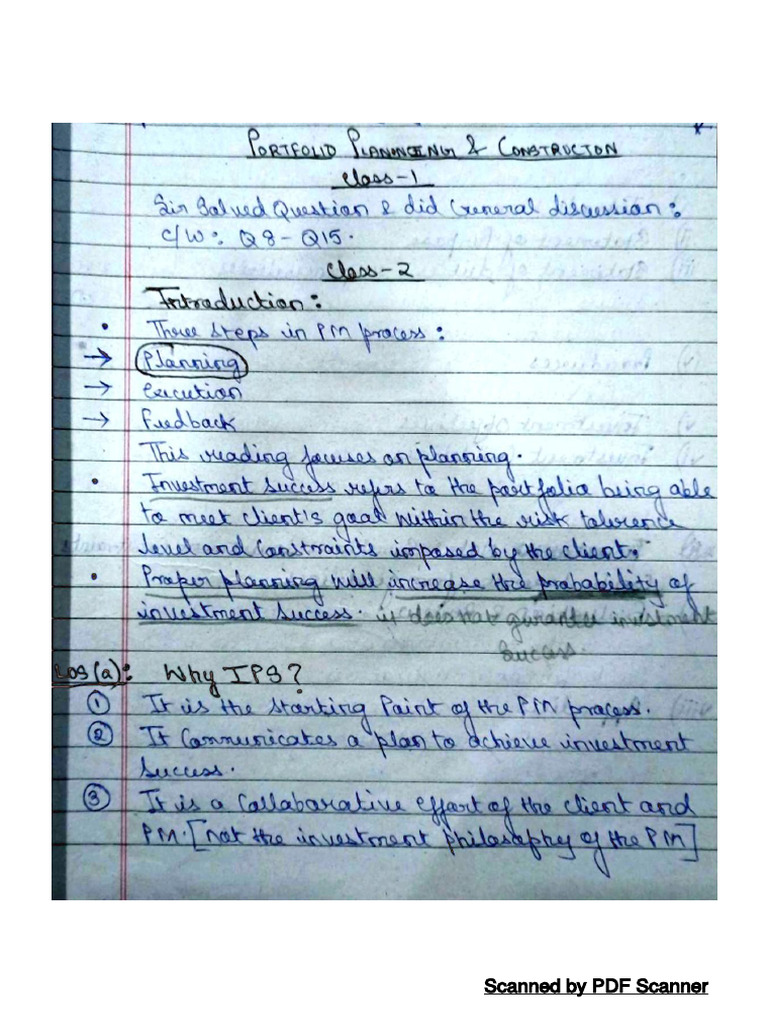 PORTFOLIO PLANNCING & CONSTRUCTON
Class-1
Sir Solved Question & did General discussion:
C/W: Q8-Q15.
Class-2
Introduction:
• Three steps in PM process:
→ Planning
→ Execution
→ Feedback
This reading focuses on planning.
• Investment success refers to the portfolio being able
to meet client's goal within the risk tolerence
level and Constraints imposed by the client.
• Proper planning will increase the probability of
investment success. it does not guarantee investment
success.
LOS(a): Why IPS?
① It is the starting Point of the PM process.
② It Communicates a plan to achieve investment
success.
③ It is a Collaborative effort of the client and
PM. [not the investment philosophy of the PM]
Scanned by PDF Scanner